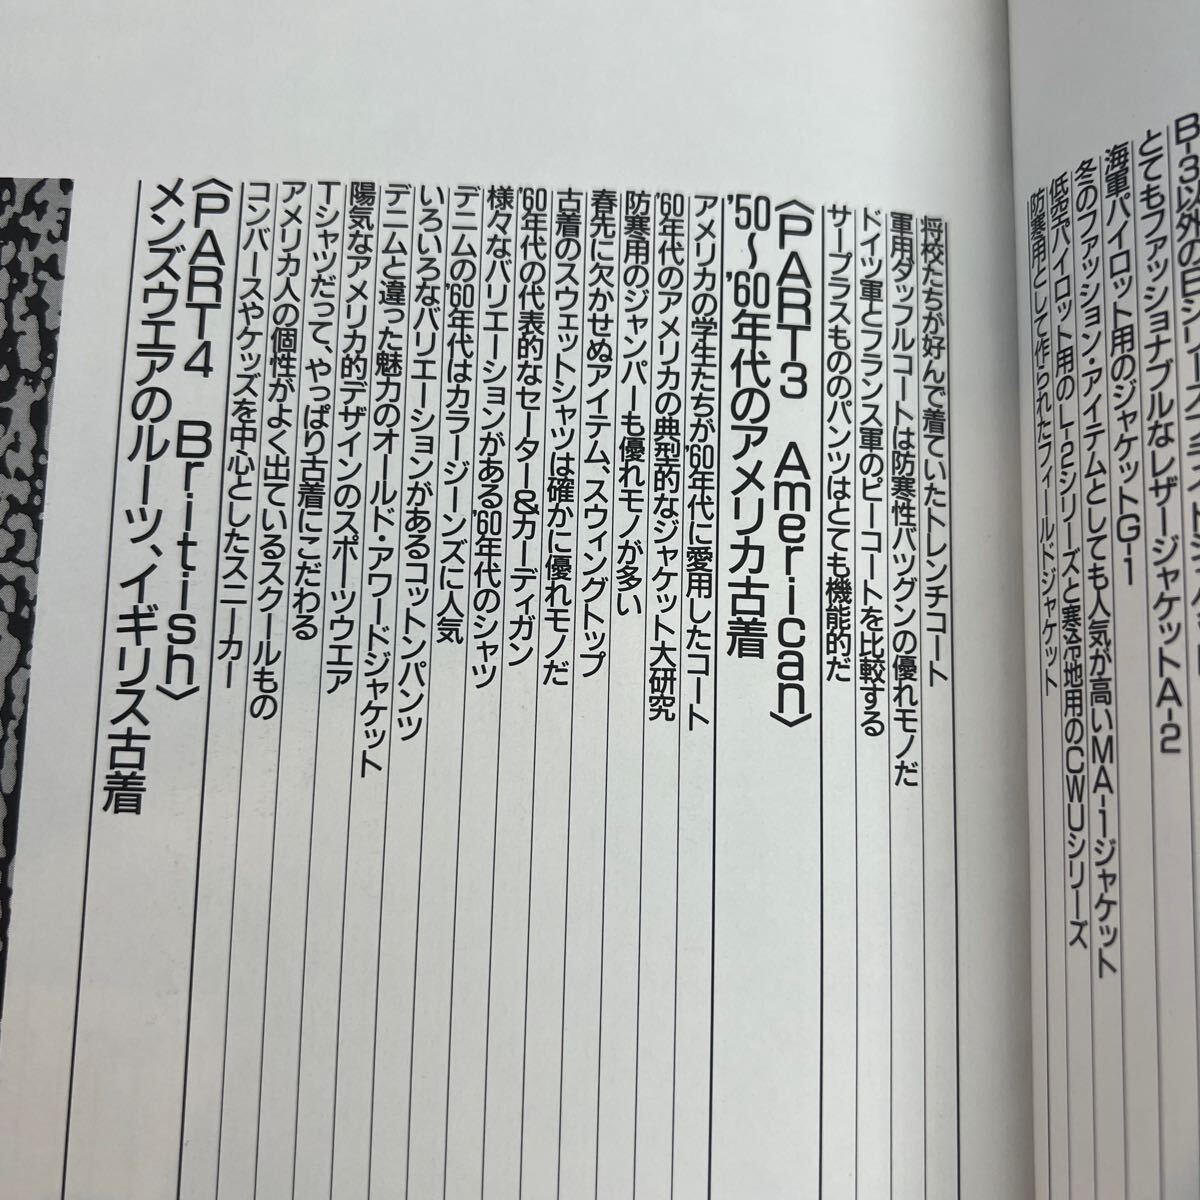 とてもファッショナブルなレザージャケットA-2
海軍パイロット用のジャケットG-1
冬のファッション・アイテムとしても人気が高いMA-1ジャケット
低空パイロット用のL-2シリーズと寒冷地用のCWUシリーズ
防寒用として作られたフィールドジャケット
将校たちが好んで着ていたトレンチコート
軍用ダッフルコートは防寒性バツグンの優れモノだ
ドイツ軍とフランス軍のピーコートを比較する
サープラスもののパンツはとても機能的だ
〈PART3 American〉
'50〜'60年代のアメリカ古着
アメリカの学生たちが'60年代に愛用したコート
'60年代のアメリカの典型的なジャケット大研究
防寒用のジャンパーも優れモノが多い
春先に欠かせぬアイテム、スウィングトップ
古着のスウェットシャツは確かに優れモノだ
'60年代の代表的なセーター&カーディガン
様々なバリエーションがある'60年代のシャツ
デニムの'60年代はカラージーンズに人気
いろいろなバリエーションがあるコットンパンツ
デニムと違った魅力のオールド・アワードジャケット
陽気なアメリカ的デザインのスポーツウエア
Tシャツだって、やっぱり古着にこだわる
アメリカ人の個性がよく出ているスクールもの
コンバースやケッズを中心としたスニーカー
〈PART4 British〉
メンズウエアのルーツ、イギリス古着